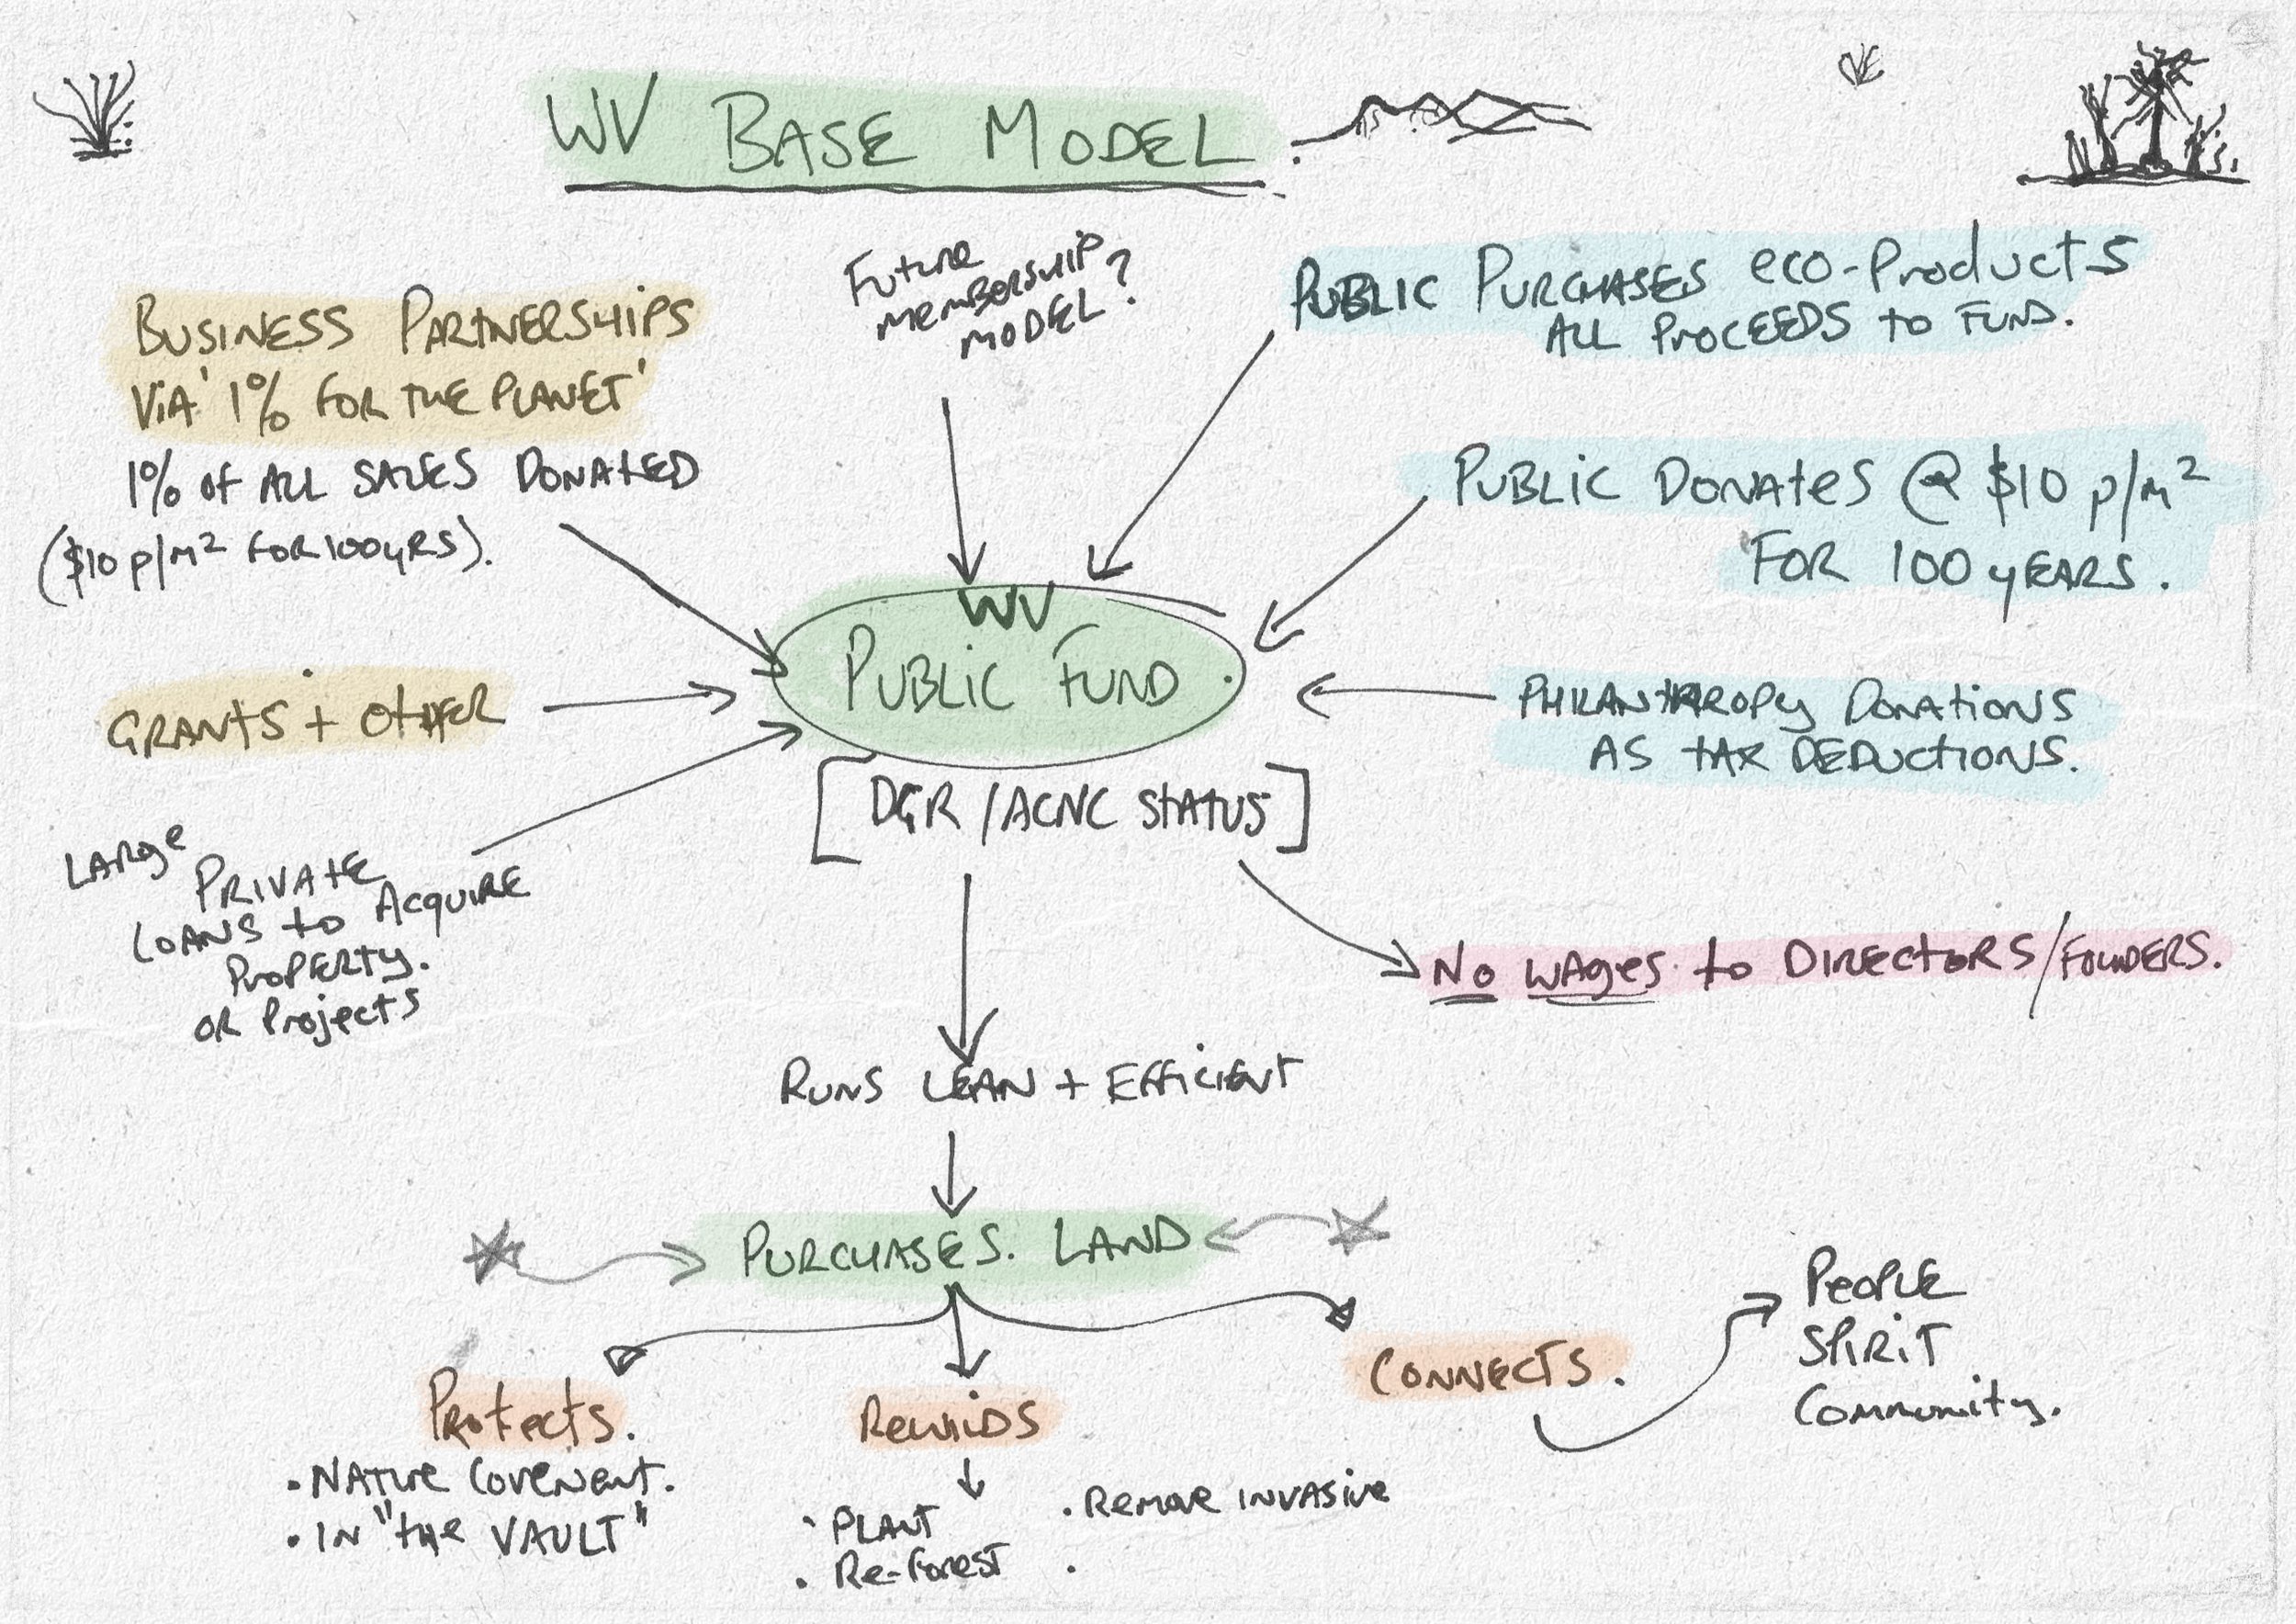 WV BASE MODEL
Future
MEMBERSHIP
MODEL?
PUBLIC PURCHASES eco-Products
ALL PROCEEDS to FUND.
BUSINESS PARTNERSHIPS
VIA '1% FOR THE PLANET'
1% of ALL SALES DONATED
($10 p/m² FOR 100yRS).
PUBLIC DONATES @ $10 p/m²
FOR 100 yEARS.
WV
PUBLIC FUND
GRANTS + OTHER
PHILANTHROPY DONATIONS
AS TAX DEDUCTIONS.
[DGR/ACNC STATUS]
LARGE
PRIVATE
LOANS to ACQUIRE
PROPERTY.
OR Projects
No WAGES to DIRECTORS/FOUNDERS.
RUNS LEAN + EFFICIENT
PURCHASES. LAND
Protects.
• NATURE COVENENT.
• IN "the VAULT"
REWILDS
• PLANT
• Re-Forest
• Remove INVASIVE
•
CONNECTS.
PEOPLE
SPIRIT
Community.